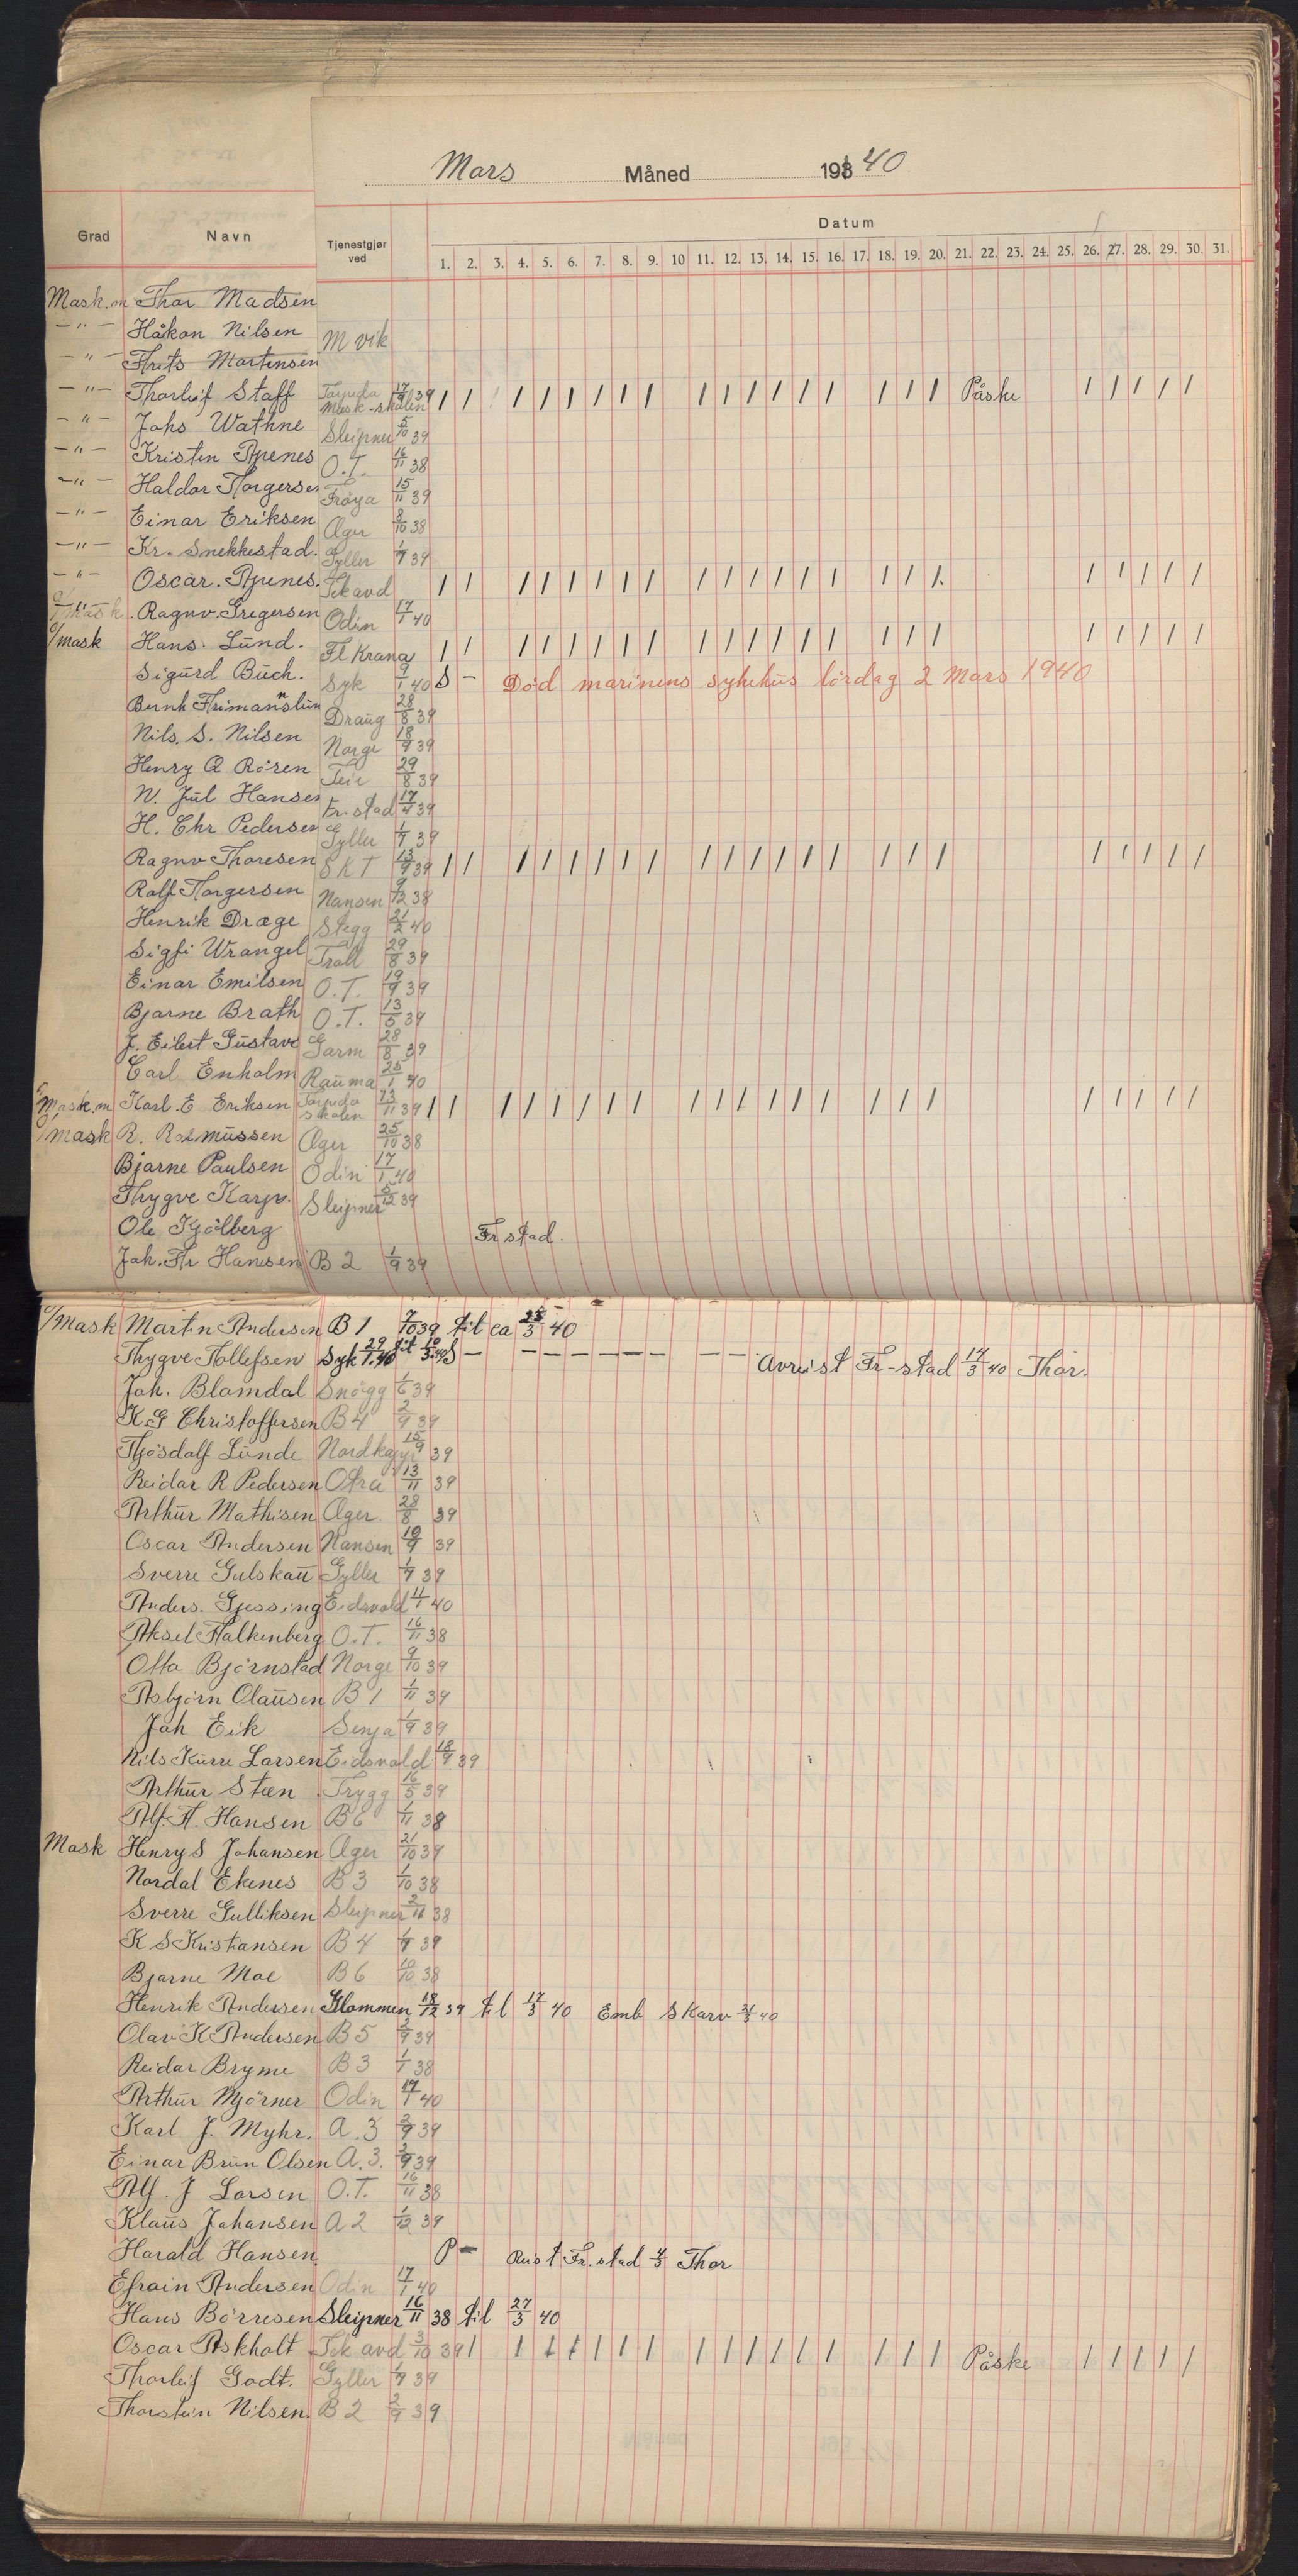 Mars Måned 193 40
Datum
Grad Navn Tjenestgjør ved 1. 2. 3. 4. 5. 6. 7. 8. 9. 10 11. 12. 13. 14. 15. 16. 17. 18. 19. 20. 21. 22. 23. 24. 25. 26. 27. 28. 29. 30. 31.
Mask.m Thor Madsen
—"— Håkon Nilsen M vik
—"— Frits Martinsen
—"— Thorleif Staff Torpedo Mask-skolen 17/9 39 / / / / / / / / / / / / / / / / / Påske / / / / /
—"— Johs Wathne Sleipner 5/10 39
—"— Kristen Apenes O.T. 16/11 38
—"— Haldor Torgersen Frøya 15/11 39
—"— Einar Eriksen Æger 8/10 38
—"— Kr. Snekkestad. Gyller 1/9 39
—"— Oscar. Apenes. Tek avd / / / / / / / / / / / / / / / / / / / / / /
Ragnv. Gregersen Odin 17/1 40
U/mask Hans. Lund. Fl Krana / / / / / / / / / / / / / / / / / / / / / /
Sigurd Buch. Syk 9/1 40 S — Död marinens sykehus lördag 2 Mars 1940
Bernh Frimannslun Draug 28/8 39
Nils. S. Nilsen Norge 18/9 39
Henry A Rören Teie 29/8 39
N. Jul Hansen Fr.stad 17/4 39
H. Chr Pedersen Gyller 1/9 39
Ragnv Thoresen S K T 13/9 39 / / / / / / / / / / / / / / / / / / / / / /
Rolf Torgersen Nansen 9/12 38
Henrik Dræge Stegg 21/2 40
Sigfi Wrangel Troll 29/8 39
Einar Emilsen O.T. 19/9 39
Bjarne Brath O.T. 13/5 39
J. Eilert Gustavs Garm 28/8 39
Carl Enholm Rauma 25/1 40
Mask.m Karl. E Eriksen Torpedo skolen 13/11 39 / / / / / / / / / / / / / / / / / / / / / /
U/mask R. Rasmussen Æger 25/10 38
Bjarne Paulsen Odin 17/1 40
Trygve Karjv. Sleipner 5/12 39
Ole Kjölberg Fr stad.
Joh. Fr Hansen B 2 1/9 39
U/Mask Martin Andersen B 1 7/10 39 til ca 23/3 40
Trygve Tollefsen Syk 29/1.40 til 10/3.40 S — — — — — — — — — Avreist Fr-stad 14/3 40 Thor.
Joh. Blomdal Snögg 1/6 39
K.G Christoffersen B 4 2/9 39
Tjösdalf Lunde Nordkapp 15/9 39
Reidar R Pedersen Otra 13/11 39
Arthur Mathisen Æger 28/8 39
Oscar Andersen Nansen 19/9 39
Sverre Gulskau Gyller 1/9 39
Anders. Gjessing Eidsvold 11/1 40
Aksel Falkenberg O.T. 16/11 38
Otto Björnstad Norge 9/10 39
Asbjörn Olausen B 1 1/11 39
Joh Eik Senja 1/9 39
Nils Kurre Larsen Eidsvold 18/9 39
Arthur Steen Trygg 16/5 39
Alf. H. Hansen B 6 1/11 38
Mask Henry S Johansen Æger 21/10 39
Nordal Ekenes B 3 1/10 38
Sverre Gulliksen Sleipner 2/11 38
K S Kristiansen B 4 1/9 39
Bjarne Moe B 6 10/10 38
Henrik Andersen Glommen 18/12 39 til 17/3 40 Emb Skarv 21/3 40
Olav K Andersen B 5 2/9 39
Reidar Bryme B 3 1/1 38
Arthur Mjörner Odin 17/1 40
Karl J. Myhr. A. 3 2/9 39
Einar Brun Olsen A. 3. 2/9 39
Alf. J Larsen O.T. 16/11 38
Klaus Johansen A 2 1/12 39
Harald Hansen P — Reist Fr. stad 4/3 Thor
Efrain Andersen Odin 17/1 40
Hans Börresen Sleipner 16/11 38 til 27/3 40
Oscar Askholt Tek avd 3/10 39 / / / / / / / / / / / / / / / / Påske / / / / /
Thorleif Godt. Gyller 1/9 39
Thorstein Nilsen. B 2 2/9 39